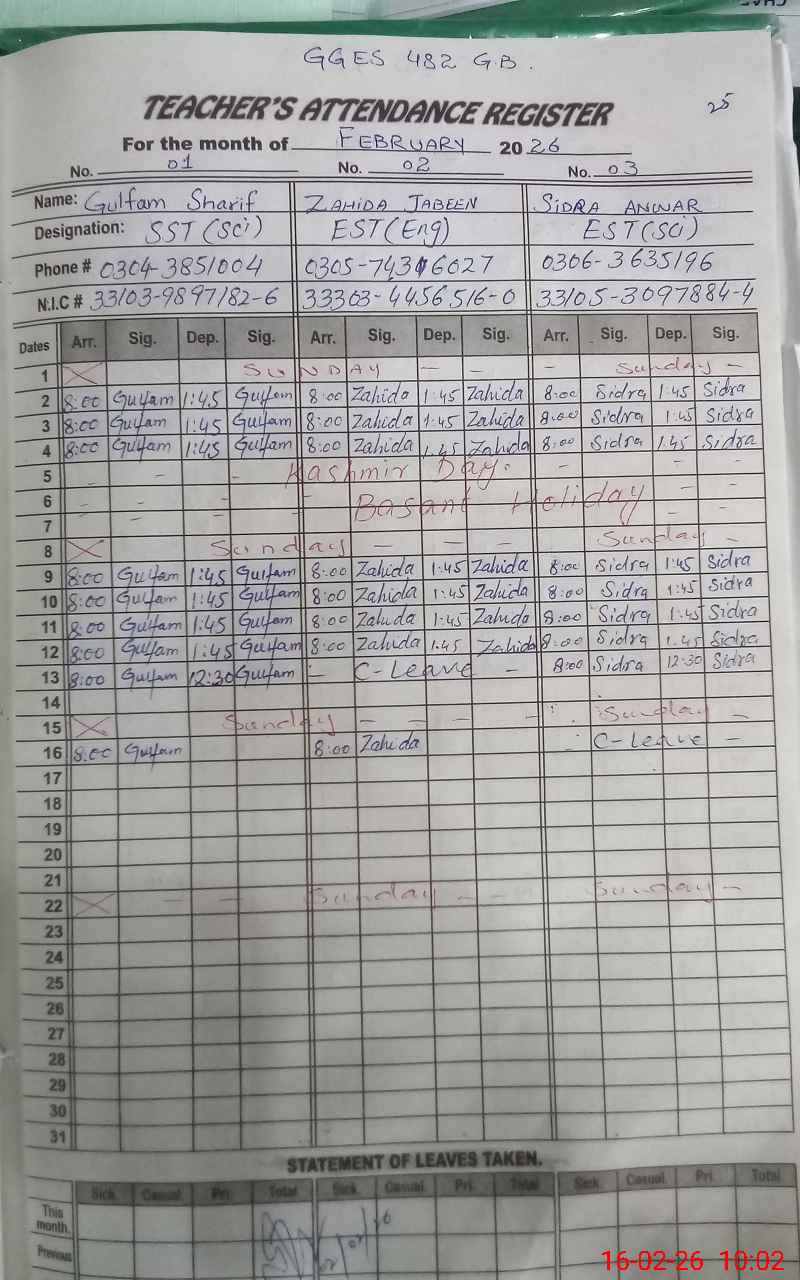 GGES 482 G.B.
TEACHER'S ATTENDANCE REGISTER 25
For the month of FEBRUARY 2026
No. 01 No. 02 No. 03
Name: Gulfam Sharif ZAHIDA JABEEN SIDRA ANWAR
Designation: SST (Sci) EST (Eng) EST (Sci)
Phone # 0304-3851004 0305-74316027 0306-3635196
N.I.C # 33103-9897182-6 33303-4456516-0 33105-3097884-4
Dates Arr. Sig. Dep. Sig. Arr. Sig. Dep. Sig. Arr. Sig. Dep. Sig.
1 SUNDAY - - - Sunday -
2 8:00 Gulfam 1:45 Gulfam 8:00 Zahida 1:45 Zahida 8:00 Sidra 1:45 Sidra
3 8:00 Gulfam 1:45 Gulfam 8:00 Zahida 1:45 Zahida 8:00 Sidra 1:45 Sidra
4 8:00 Gulfam 1:45 Gulfam 8:00 Zahida 1.45 Zahida 8:00 Sidra 1.45 Sidra
5 - - - Kashmir Day. - - -
6 - - - - Basant Holiday - -
7 - - - - -
8 Sunday - - - Sunday -
9 8:00 Gulfam 1:45 Gulfam 8:00 Zahida 1:45 Zahida 8:00 Sidra 1:45 Sidra
10 8:00 Gulfam 1:45 Gulfam 8:00 Zahida 1:45 Zahida 8:00 Sidra 1:45 Sidra
11 8:00 Gulfam 1:45 Gulfam 8:00 Zahida 1:45 Zahida 8:00 Sidra 1:45 Sidra
12 8:00 Gulfam 1:45 Gulfam 8:00 Zahida 1.45 Zahida 8:00 Sidra 1.45 Sidra
13 8:00 Gulfam 12:30 Gulfam - C-Leave - 8:00 Sidra 12:30 Sidra
14
15 Sunday - - - - Sunday -
16 8:00 Gulfam 8:00 Zahida C-Leave -
17
18
19
20
21
22 - - Sunday - - Sunday -
23
24
25
26
27
28
29
30
31
STATEMENT OF LEAVES TAKEN.
Sick. Casual. Pri. Total Sick. Casual. Pri. Total Sick. Casual. Pri. Total
This month.
Previous
16-02-26 10:02